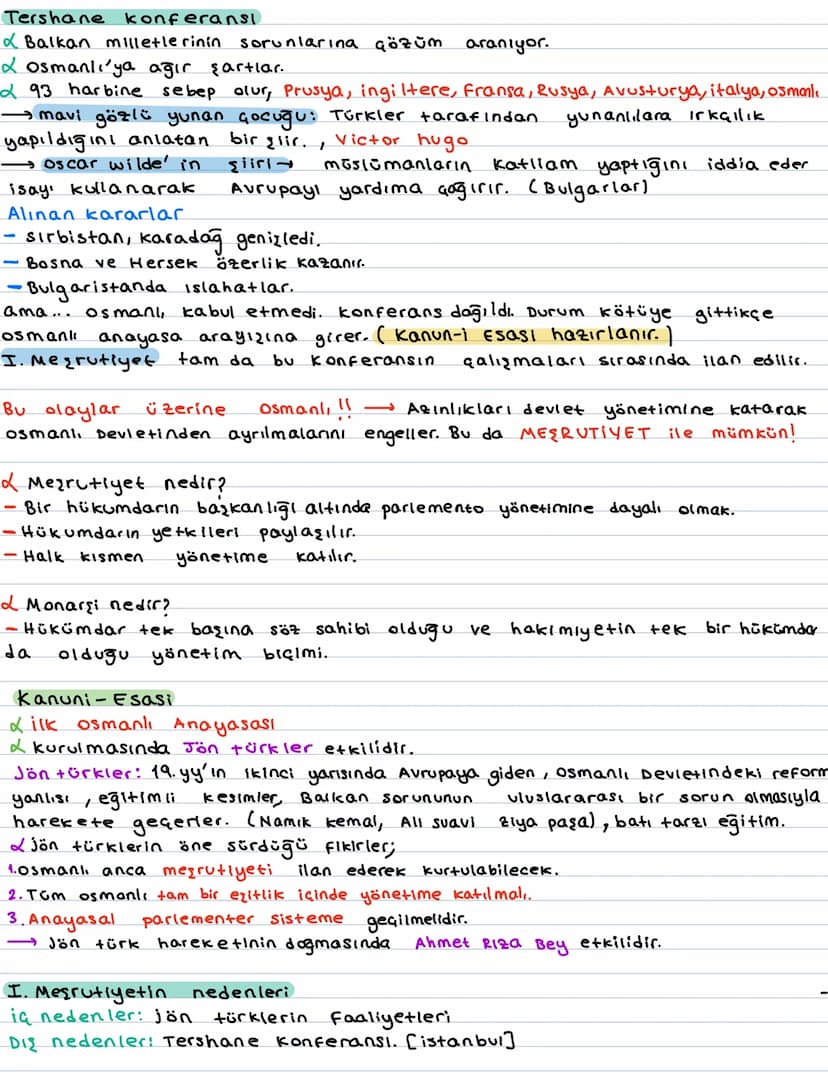 Tershane konferansı
α Balkan milletlerinin sorunlarına çözüm aranıyor.
α Osmanlı'ya ağır şartlar.
α 93 harbine sebep olur, Prusya, ingiltere, Fransa, Rusya, Avusturya, italya, osmanlı
→ mavi gözlü yunan çocuğu: Türkler tarafından yunanlılara ırkçılık
yapıldığını anlatan bir şiir. , Victor hugo
→ oscar wilde' in şiiri → müslümanların katliam yaptığını iddia eder
isayı kullanarak Avrupayı yardıma çağırır. (Bulgarlar)
Alınan kararlar
- sırbistan, karadağ genişledi.
- Bosna ve Hersek özerlik kazanır.
- Bulgaristanda ıslahatlar.
ama... osmanlı, kabul etmedi. konferans dağıldı. Durum kötüye gittikçe
osmanlı anayasa arayışına girer. (Kanun-i Esasi hazırlanır.)
I. Meşrutiyet tam da bu konferansın çalışmaları sırasında ilan edilir.
Bu olaylar üzerine Osmanlı !! → Azınlıkları devlet yönetimine katarak
osmanlı Devletinden ayrılmalarını engeller. Bu da MEŞRUTİYET ile mümkün!
α Meşrutiyet nedir?
- Bir hükümdarın başkanlığı altında parlemento yönetimine dayalı olmak.
- Hükümdarın yetkileri paylaşılır.
- Halk kısmen yönetime katılır.
α Monarşi nedir?
- Hükümdar tek başına söz sahibi olduğu ve hakimiyetin tek bir hükümda
da olduğu yönetim biçimi.
Kanuni - Esasi
α ilk osmanlı Anayasası
α kurulmasında Jön türkler etkilidir.
Jön türkler: 19. yy'ın ikinci yarısında Avrupaya giden , osmanlı Devletindeki reform
yanlısı , eğitimli kesimler, Balkan sorununun uluslararası bir sorun olmasıyla
harekete geçerler. (Namık kemal, Ali suavi ziya paşa) , batı tarzı eğitim.
α jön türklerin öne sürdüğü fikirler;
1. osmanlı anca meşrutiyeti ilan ederek kurtulabilecek.
2. Tüm osmanlı tam bir eşitlik içinde yönetime katılmalı.
3. Anayasal parlementer sisteme geçilmelidir.
→ Jön türk hareketinin doğmasında Ahmet Rıza Bey etkilidir.
I. Meşrutiyetin nedenleri
iç nedenler: jön türklerin faaliyetleri
Dış nedenler: Tershane Konferansı. [istanbul]